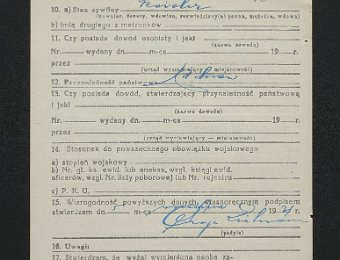 10. a) Stan cywilny
(kawaler, żonaty, wdowiec, rozwiedziony(a) panna, mężatka, wdowa)
b) Imię drugiego z małżonków
11. Czy posiada dowód osobisty i jaki
(nazwa dowodu)
Nr. wydany dn. m-ca 19 r.
przez
(urząd wystawiający — miejscowość)
12. Przynależność państwowa
13. Czy posiada dowód, stwierdzający przynależność państwową
i jaki
(nazwa dowodu)
Nr. wydany dn. m-ca 19 r.
przez
(urząd wystawiający — miejscowość)
14. Stosunek do powszechnego obowiązku wojskowego
a) stopień wojskowy
b) Nr. gł. ks. ewid. lub aneksu, wzgl. księgi ewid.
oficerów, wzgl. Nr. listy poborowej lub Nr. rejestru
c) P. K. U.
15. Wiarogodność powyższych danych, własnoręcznym podpisem
stwierdzam dn. m-ca 19 r.
(podpis)
16. Uwagi:
17. Stwierdzam, że wyżej wymieniona osoba za-